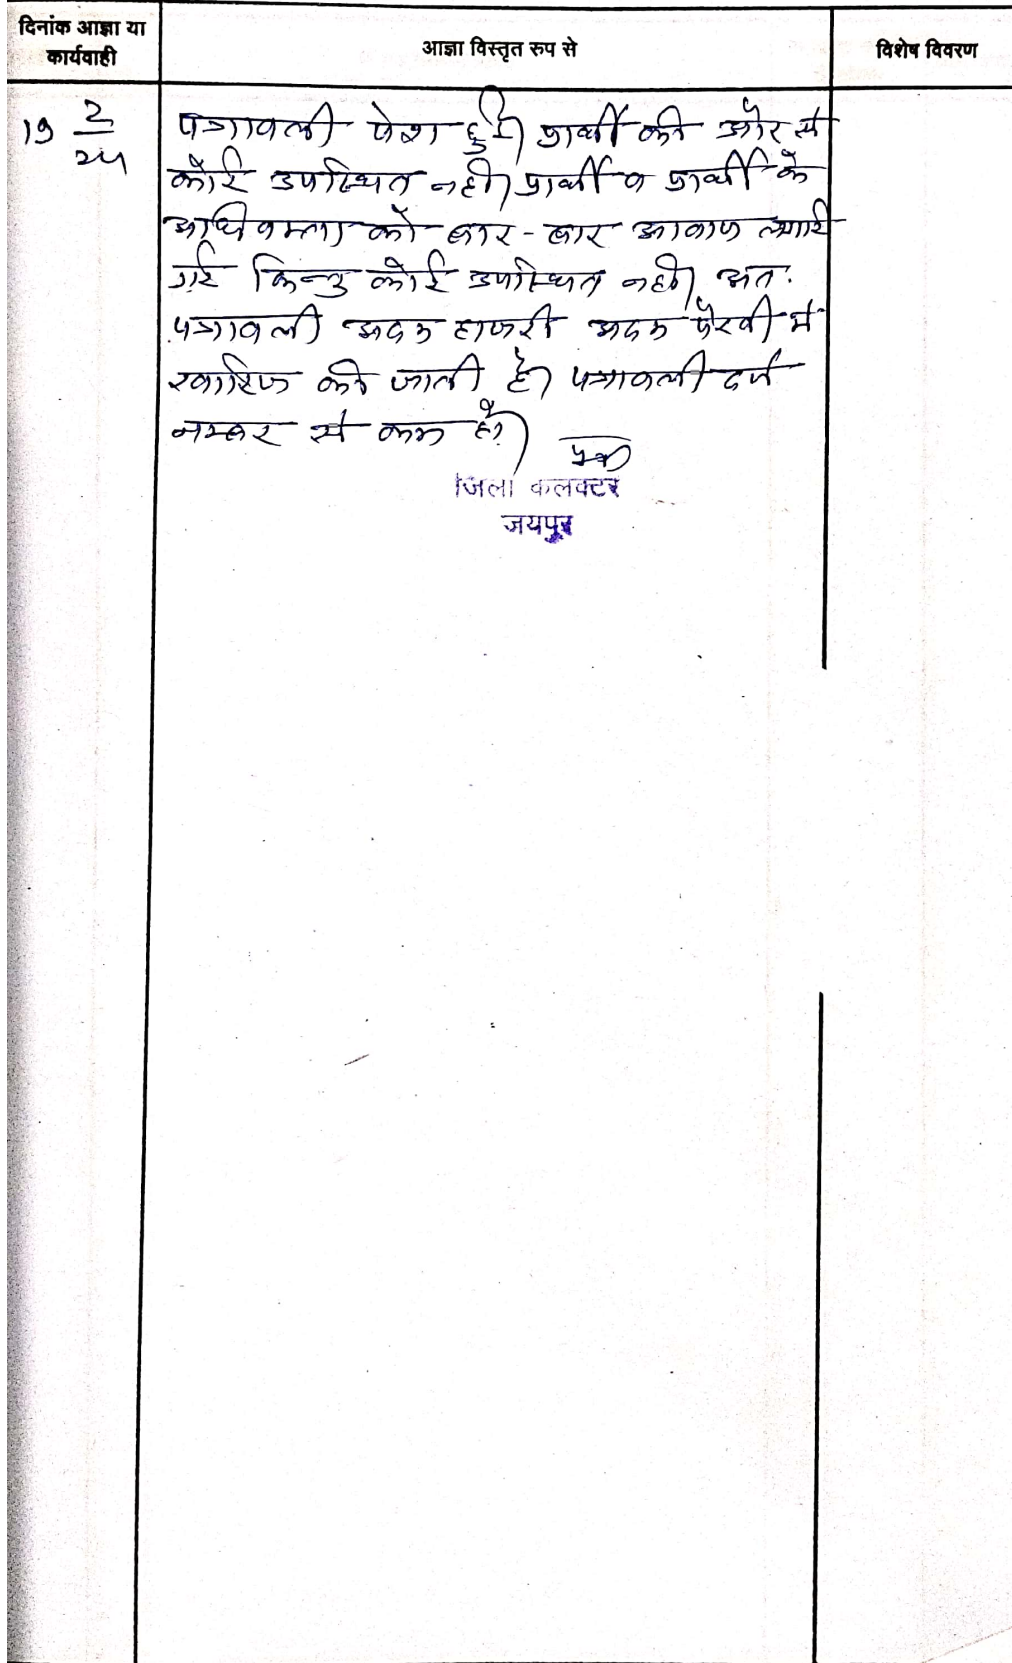 दिनांक आज्ञा या
कार्यवाही
आज्ञा विस्तृत रुप से
विशेष विवरण
19 2/24
पत्रावली पेश हुई। प्रार्थी की ओर से
कोई उपस्थित नही। प्रार्थी व प्रार्थी के
अधिवक्ता को बार-बार आवाज लगाई
गई किन्तु कोई उपस्थित नही। अत:
पत्रावली अदम हाजरी अदम पैरवी में
खारिज की जाती है। पत्रावली दर्ज
नम्बर से कम हो।
जिला कलक्टर
जयपुर